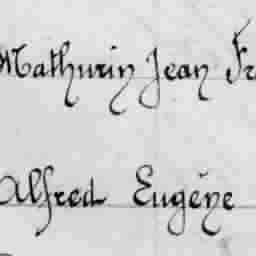 Mathurin Jean Fr
Alfred Eugène